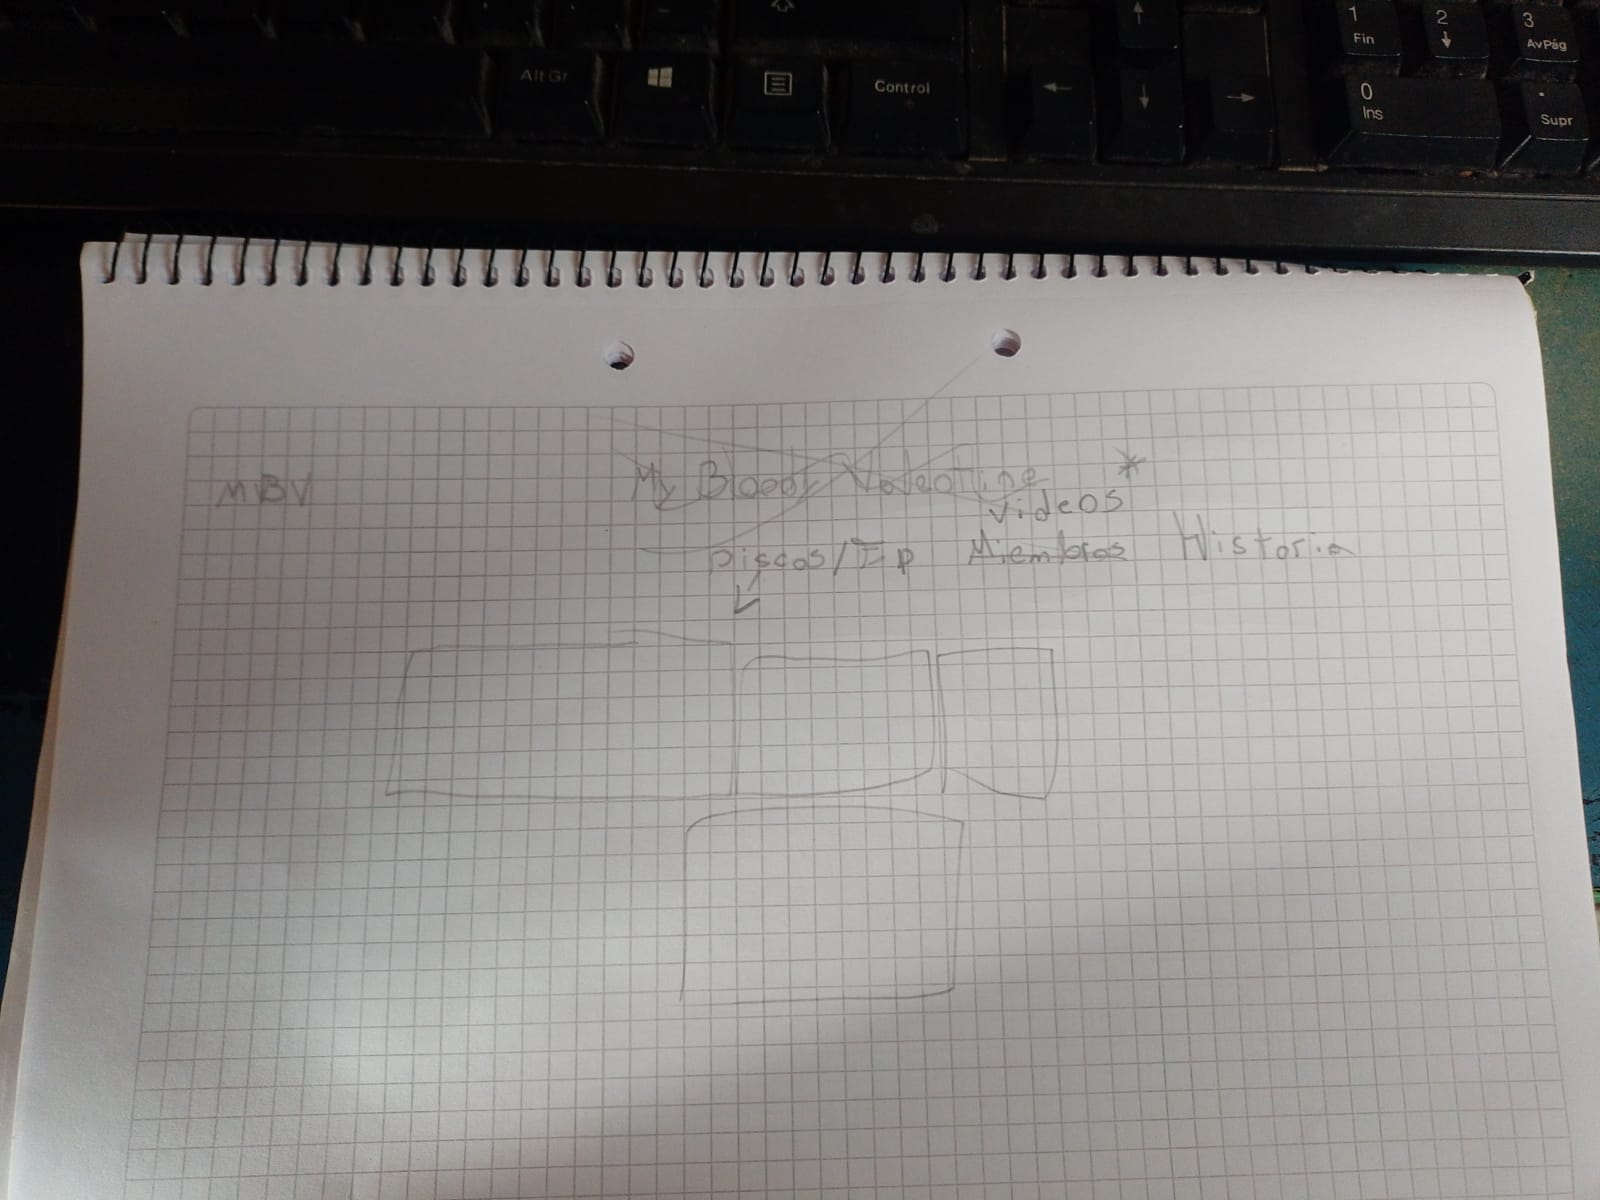 Alt Gr
Control
1
Fin
2
3
AvPág
0
Ins
.
Supr
MBV
My Bloody Valentine *
Videos
Discos/EP Miembros Historia